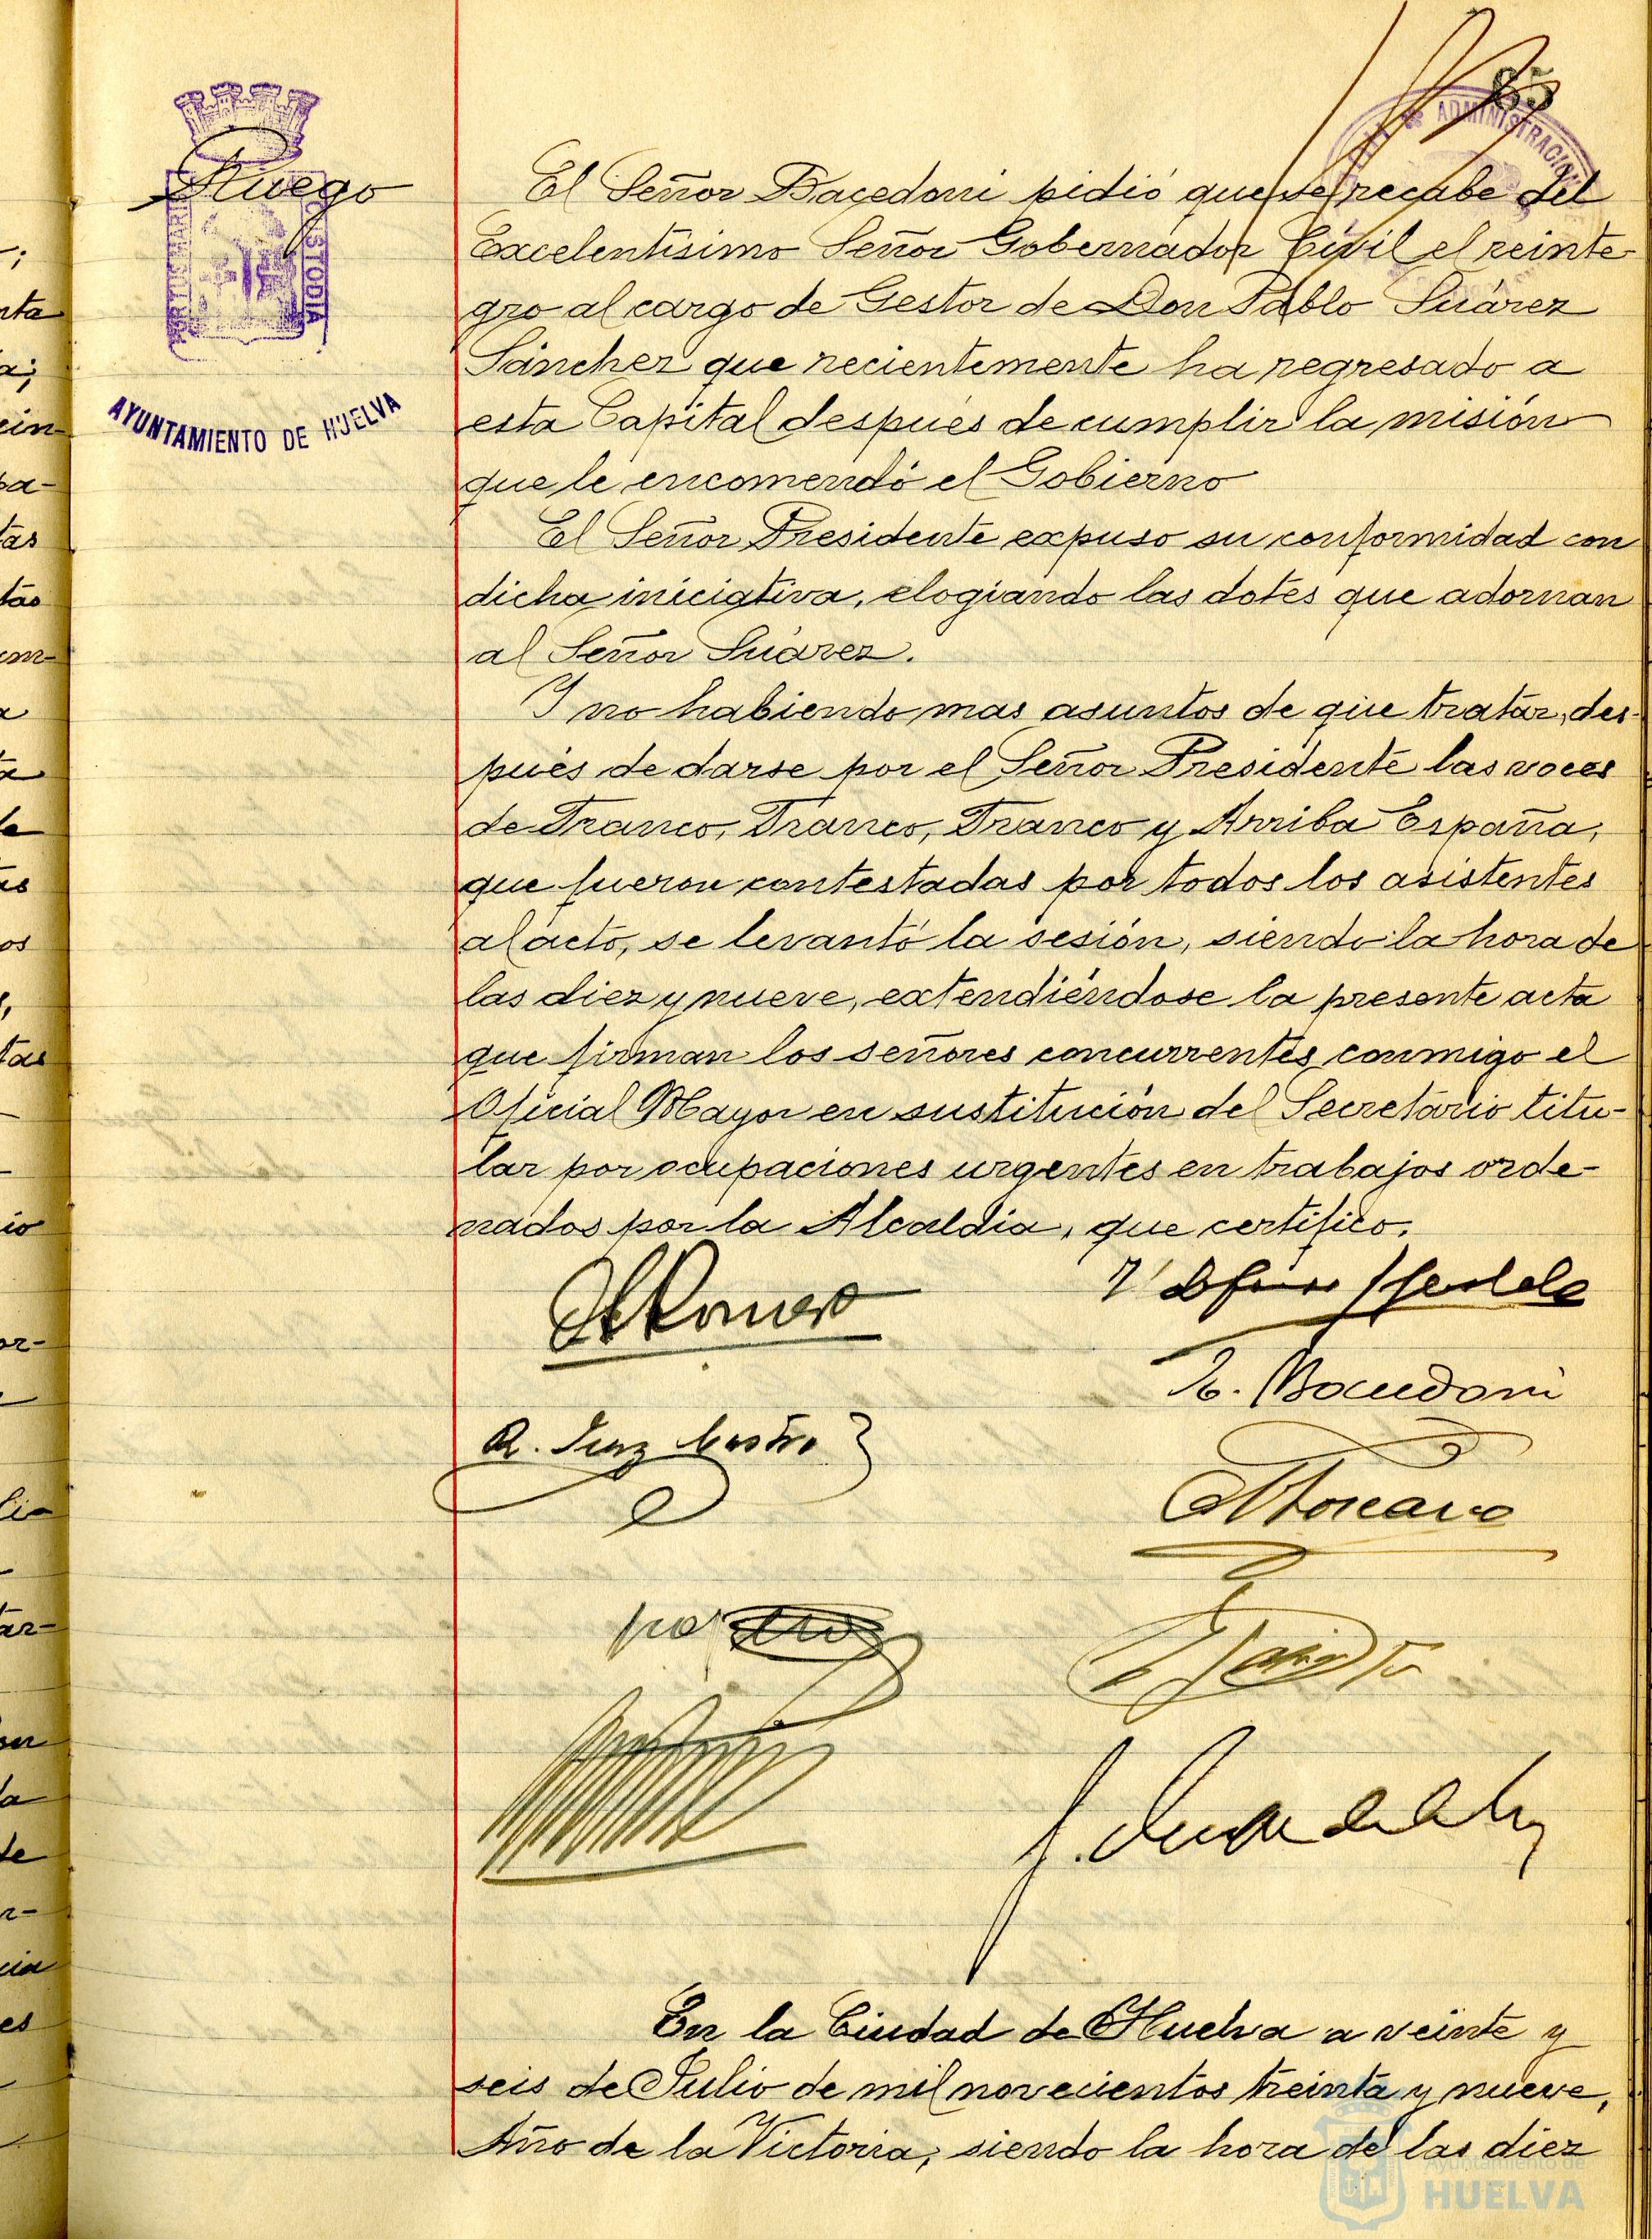 85
ADMINISTRACION
Ruego
PORTUS MARIS
CUSTODIA
AYUNTAMIENTO DE HUELVA
El Señor Bacedoni pidió que se recabe del
Excelentísimo Señor Gobernador Civil el reinte-
gro al cargo de Gestor de Don Pablo Suárez
Sánchez que recientemente ha regresado a
esta Capital después de cumplir la misión
que le encomendó el Gobierno
El Señor Presidente expuso su conformidad con
dicha iniciativa, elogiando las dotes que adornan
al Señor Suárez.
Y no habiendo mas asuntos de que tratar, des-
pués de darse por el Señor Presidente las voces
de Franco, Franco, Franco y Arriba España,
que fueron contestadas por todos los asistentes
al acto, se levantó la sesión, siendo la hora de
las diez y nueve, extendiéndose la presente acta
que firman los señores concurrentes conmigo el
Oficial Mayor en sustitución del Secretario titu-
lar por ocupaciones urgentes en trabajos orde-
nados por la Alcaldia, que certifico.
R. Bacedoni
En la Ciudad de Huelva a veinte y
seis de Julio de mil novecientos treinta y nueve,
Año de la Victoria, siendo la hora de las diez
Ayuntamiento de
HUELVA